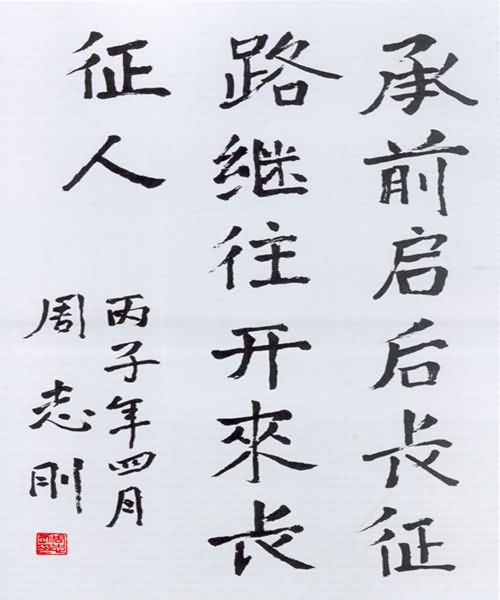 承前启后长征
路继往开來长
征人
丙子年四月
周志刚